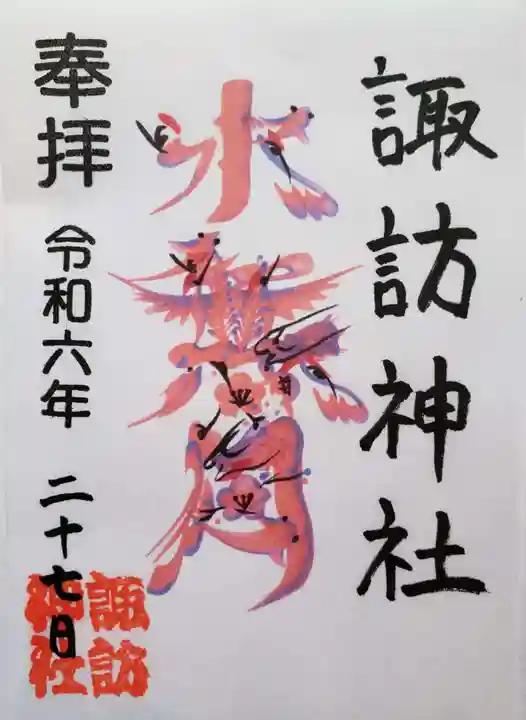 諏訪神社
水無月
奉拝
令和六年 二十七日
諏訪
神社